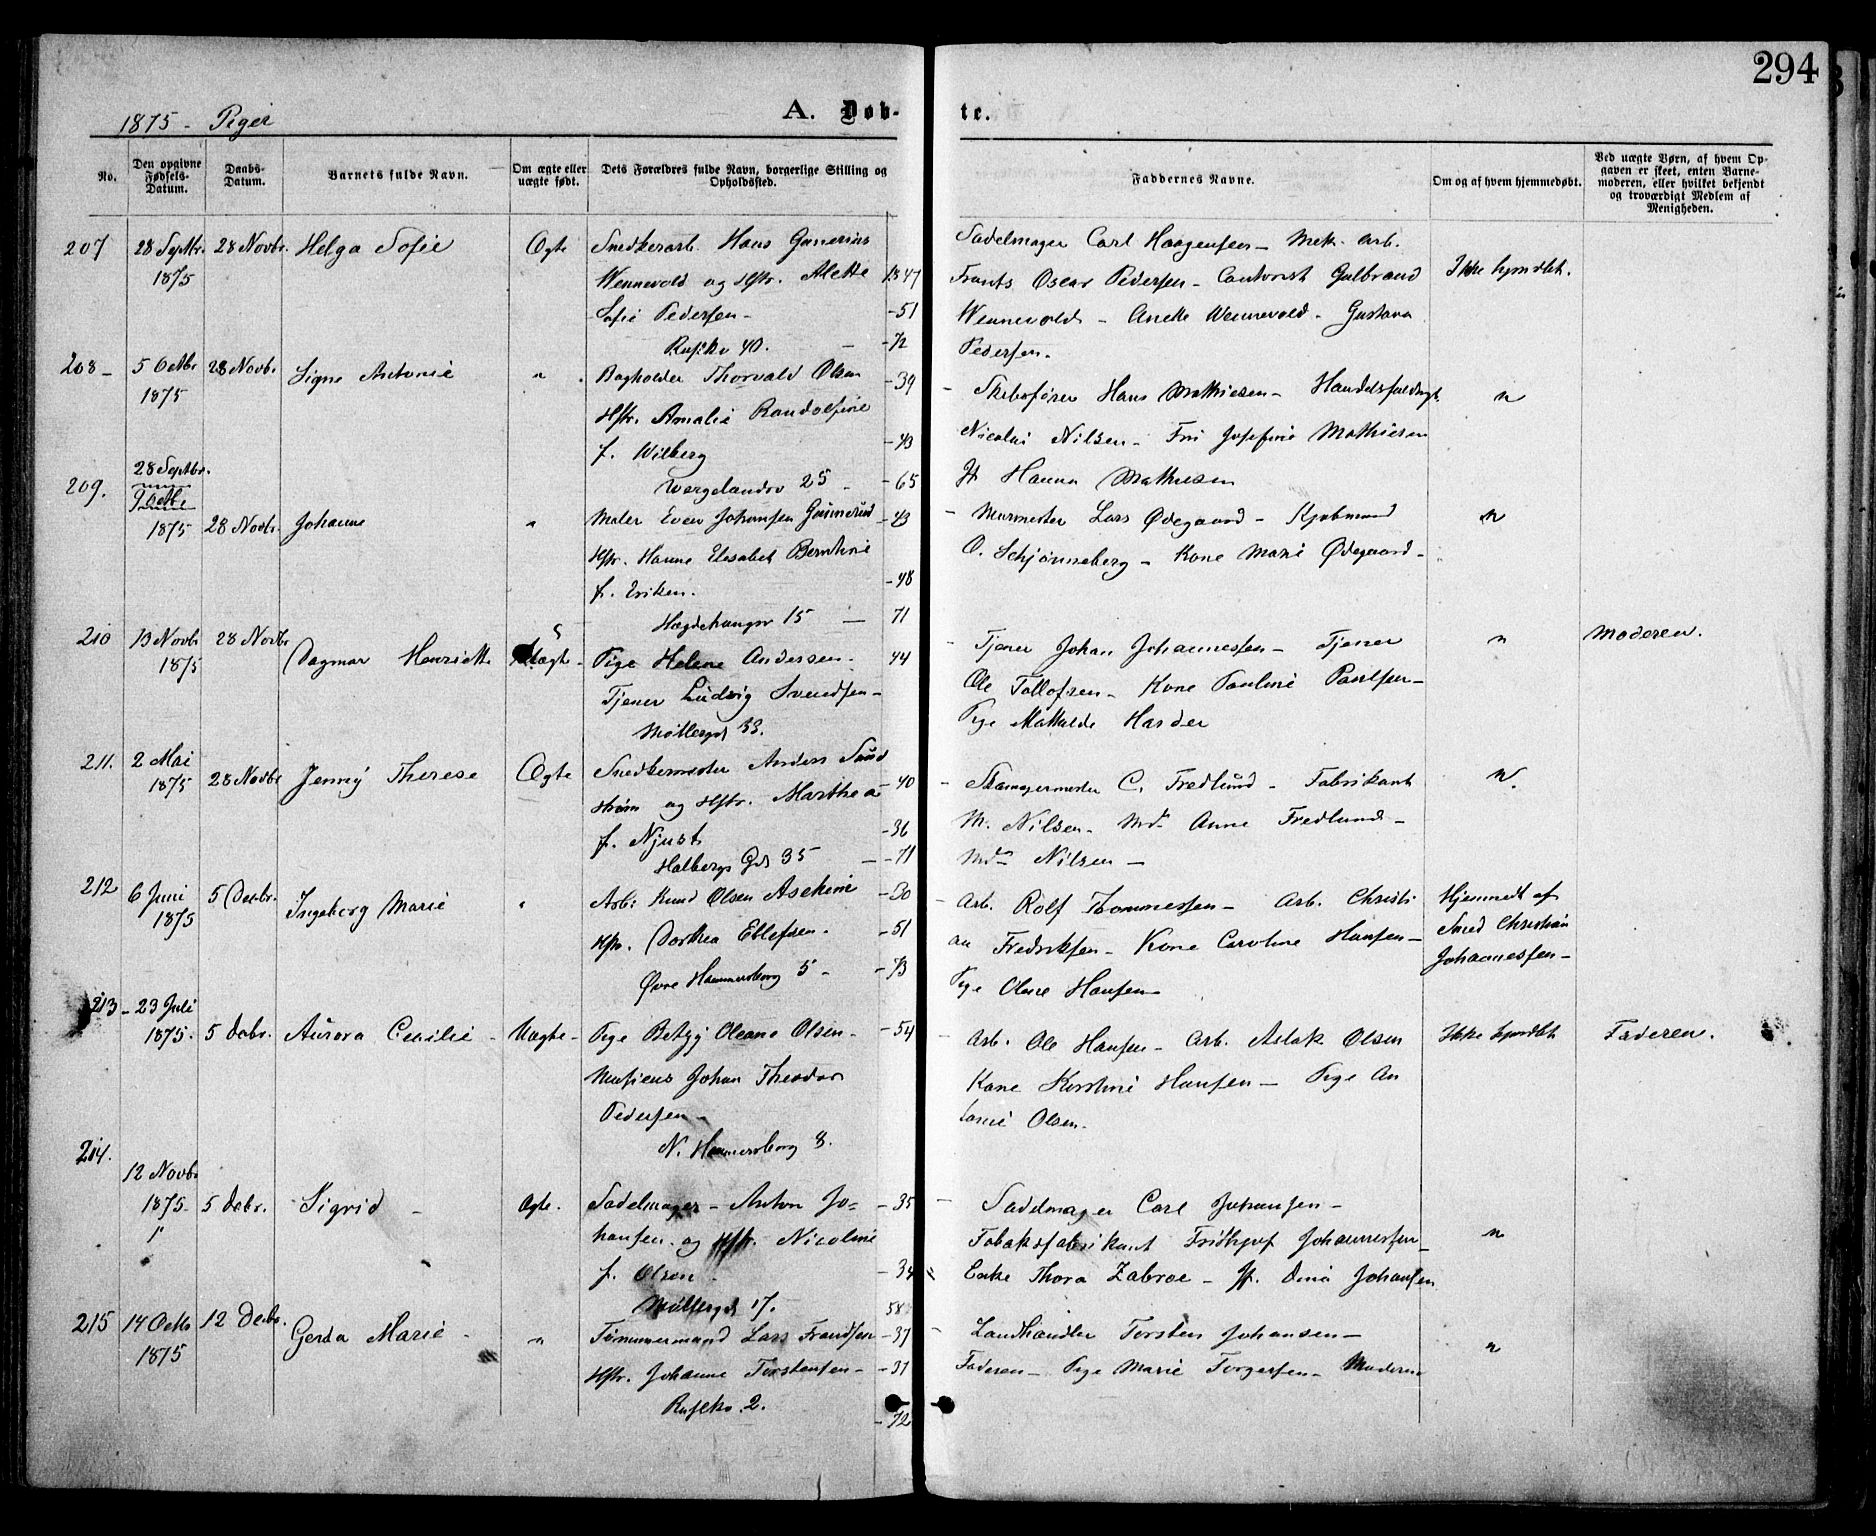 294
1875 - Piger
A. Døb-
te.
No.
Den opgivne Fødsels-Datum.
Daabs-Datum.
Barnets fulde Navn.
Om ægte eller uægte født.
Dets Forældres fulde Navn, borgerlige Stilling og Opholdssted.
Faddernes Navne.
Om og af hvem hjemmedøbt.
Ved uægte Børn, af hvem Opgaven er skeet, enten Barnemoderen, eller hvilket bekjendt og troværdigt Medlem af Menigheden.
207 28 Septbr. 28 Novbr. Helga Sofie Ægte Snedkerarb. Hans Gunerius Sadelmager Carl Haagensen - Mek. Arb.
1875 Wennevold og Hstr. Alette 1847 Frants Oscar Pedersen - Cantorist Gulbrand Ikke hjmdbt.
Sofie Pedersen - - 51 Wennevold - Anette Wennevold - Gustava
40. - - 72 Pedersen.
208 - 5 Octbr 28 Novbr. Signe Antonie " Bogholder Thorvald Olsen - 39 - Skibsfører Hans Mathiesen - Handelsfuldmgt. "
1875 Hstr. Amalie Randolfine
f. Wilberg - 43 Nicolai Nilsen - Fru Josefine Mathiesen
Wergelandsv 25 - - 65 Jf Hanna Mathiesen
209. 28 Septbr.
9 Octbr
1875 28 Novbr. Johanne " Maler Even Johansen Gunnerud - 43 - Murmester Lars Ødegaard - Kjøbmand "
Hstr. Hanne Elisabet Bernhine O. Schjønneberg - Kone Marie Ødegaard -
f. Eriksen. - 48
Hægdehaugsv 15 - 71
210 13 Novbr 28 Novbr Dagmar Henriette Uægte - Pige Helene Andersen. 44 - Tjener Johan Johannessen - Tjener " Moderen.
1875 Tjener Ludvig Svendsen - Ole Tollofsen - Kone Pauline Paulsen -
Møllergd 33. Pige Mathilde Harder
211. 2 Mai
1875 28 Novbr Jenny Therese Ægte Snedkermester Anders Sund - 40 - Skomagermester C. Fredlund - Fabrikant "
strøm og Hstr. Marthea M. Nilsen - Md. Anne Fredlund -
f. Njust - 36
Holbergs Gd 35 - - 71 Md. Nilsen -
212 6 Juni 5 Decbr. Ingeborg Marie " Arb. Knud Olsen - 50 - Arb. Rolf Thommessen - Arb. Christi Hjemmedt af
1875 Hstr. Dorthea Ellefsen. - 51 an Fredriksen - Kone Caroline Hansen - Smed Christian
Øvre Hammersborg 5 - - 73 Pige Oline Hansen - Johannessen -
213 - 23 Juli
1875. 5 Decbr. Aurora Cecilie - Uægte - Pige Betzy Oleane Olsen - - 54 - Arb. Ole Hansen - Arb. Aslak Olsen Ikke hjmdbt Faderen.
Musicus Johan Theodor Kone Kirstine Hansen - Pige An
Pedersen - tonie Olsen.
N. Hammersborg 8.
214. 12 Novbr
1875 5 Decbr. Sigrid - Ægte. Sadelmager - Anton Jo= - 35 - Sadelmager Carl Johansen -
hansen - og Hstr. Nicoline Tobaksfabrikant Fridthjof Johannessen - "
f. Olsen - - 34 Enke Thora Zabroe - Jf. Dina Johansen
Møllergd 17. 58
215 14 Octbr 12 Decbr. Gerda Marie - " Tømmermand Lars Frandsen - 37 - Landhandler Torsten Johansen - "
1875 Hstr. Johanne Torstensen - - 31 Faderen - Pige Marie Torgersen - Moderen
2. - 72